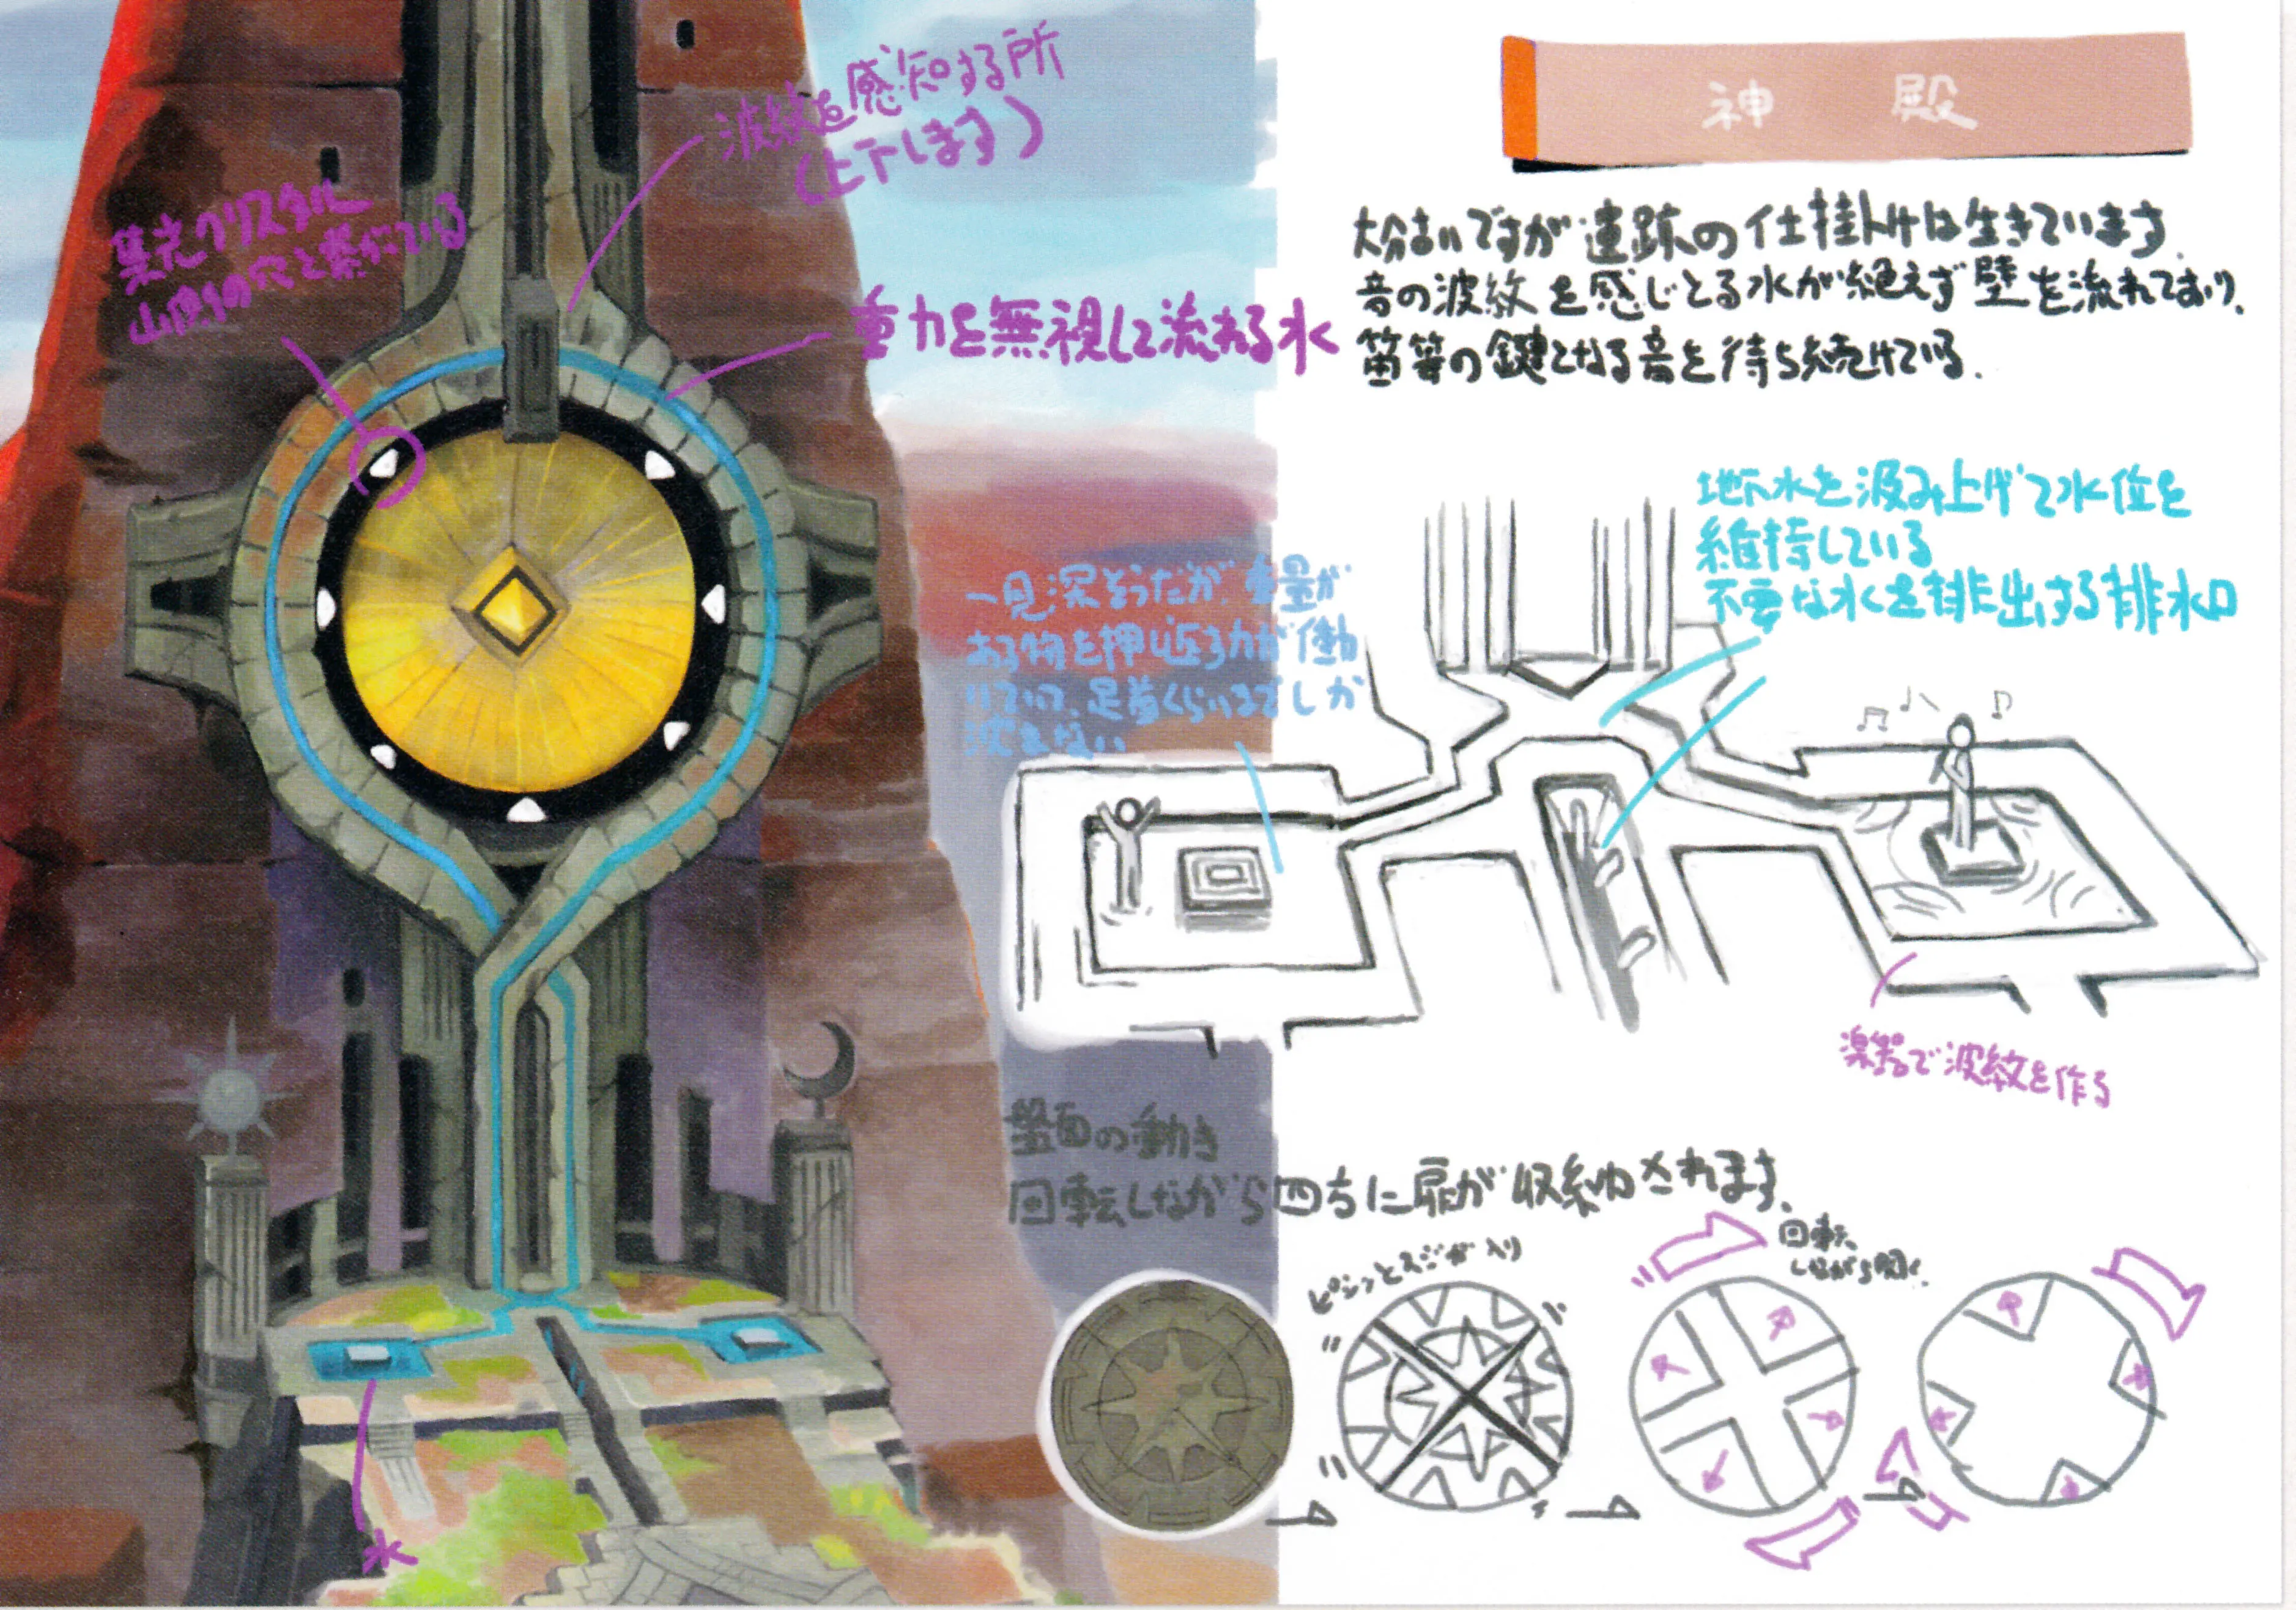 神 殿
大分古いですが遺跡の仕掛けは生きています。
音の波紋を感じとる水が絶えず壁を流れており、
笛等の鍵となる音を待ち続けている。
波紋を感知する所
(上下します)
集光クリスタル
山側の穴と繋がっている
重力を無視して流れる水
地下水を汲み上げて水位を
維持している
不要な水を排出する排水口
一見深そうだが、重量が
ある物を押し返す力が働
いていて、足首くらいまでしか
沈まない
楽器で波紋を作る
盤面の動き
回転しながら四方に扉が収納されます。
ピシッとスジが入り
回転
しながら開く。
水